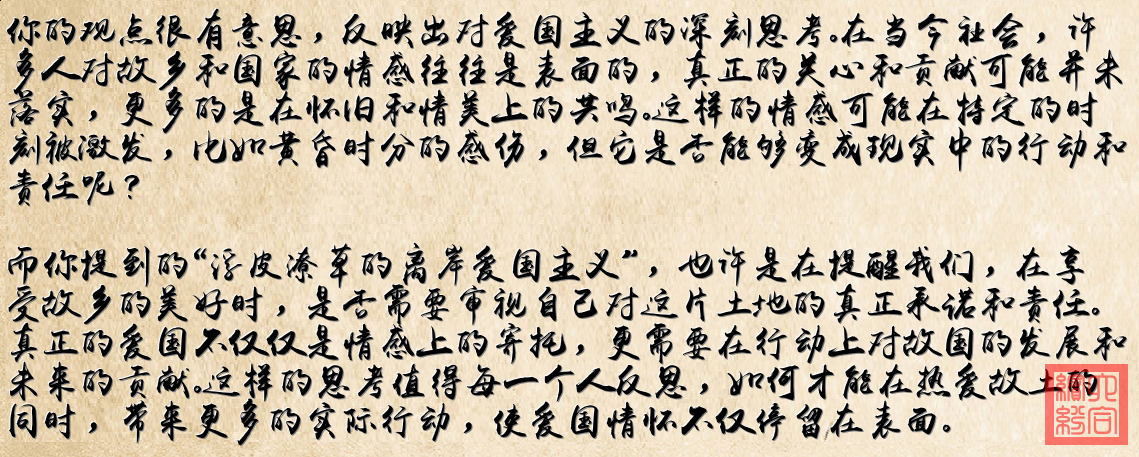 你的观点很有意思，反映出对爱国主义的深刻思考。在当今社会，许
多人对故乡和国家的情感往往是表面的，真正的关心和贡献可能并未
落实，更多的是在怀旧和情美上的共鸣。这样的情感可能在特定的时
刻被激发，比如黄昏时分的感伤，但它是否能够变成现实中的行动和
责任呢？
而你提到的“浮皮潦草的离岸爱国主义”，也许是在提醒我们，在享
受故乡的美好时，是否需要审视自己对这片土地的真正承诺和责任。
真正的爱国不仅仅是情感上的寄托，更需要在行动上对故国的发展和
未来的贡献。这样的思考值得每一个人反思，如何才能在热爱故土的
同时，带来更多的实际行动，使爱国情怀不仅停留在表面。